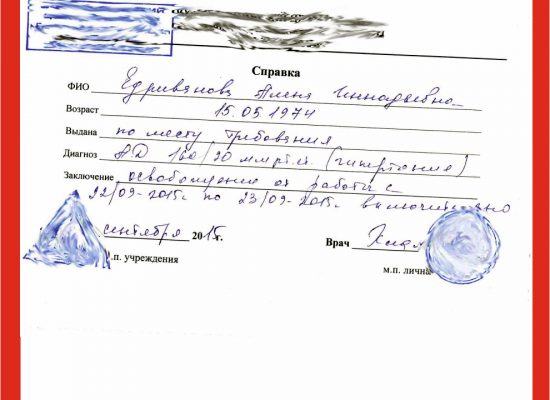 Справка
ФИО
Возраст 15.05.1974
Выдана по месту требования
Диагноз АД 160/90 мм рт.ст. (гипертония)
Заключение освобождение от работы с
22/09-2015г по 23/09-2015г включительно
сентября 2015г. Врач
.п. учреждения м.п. лична